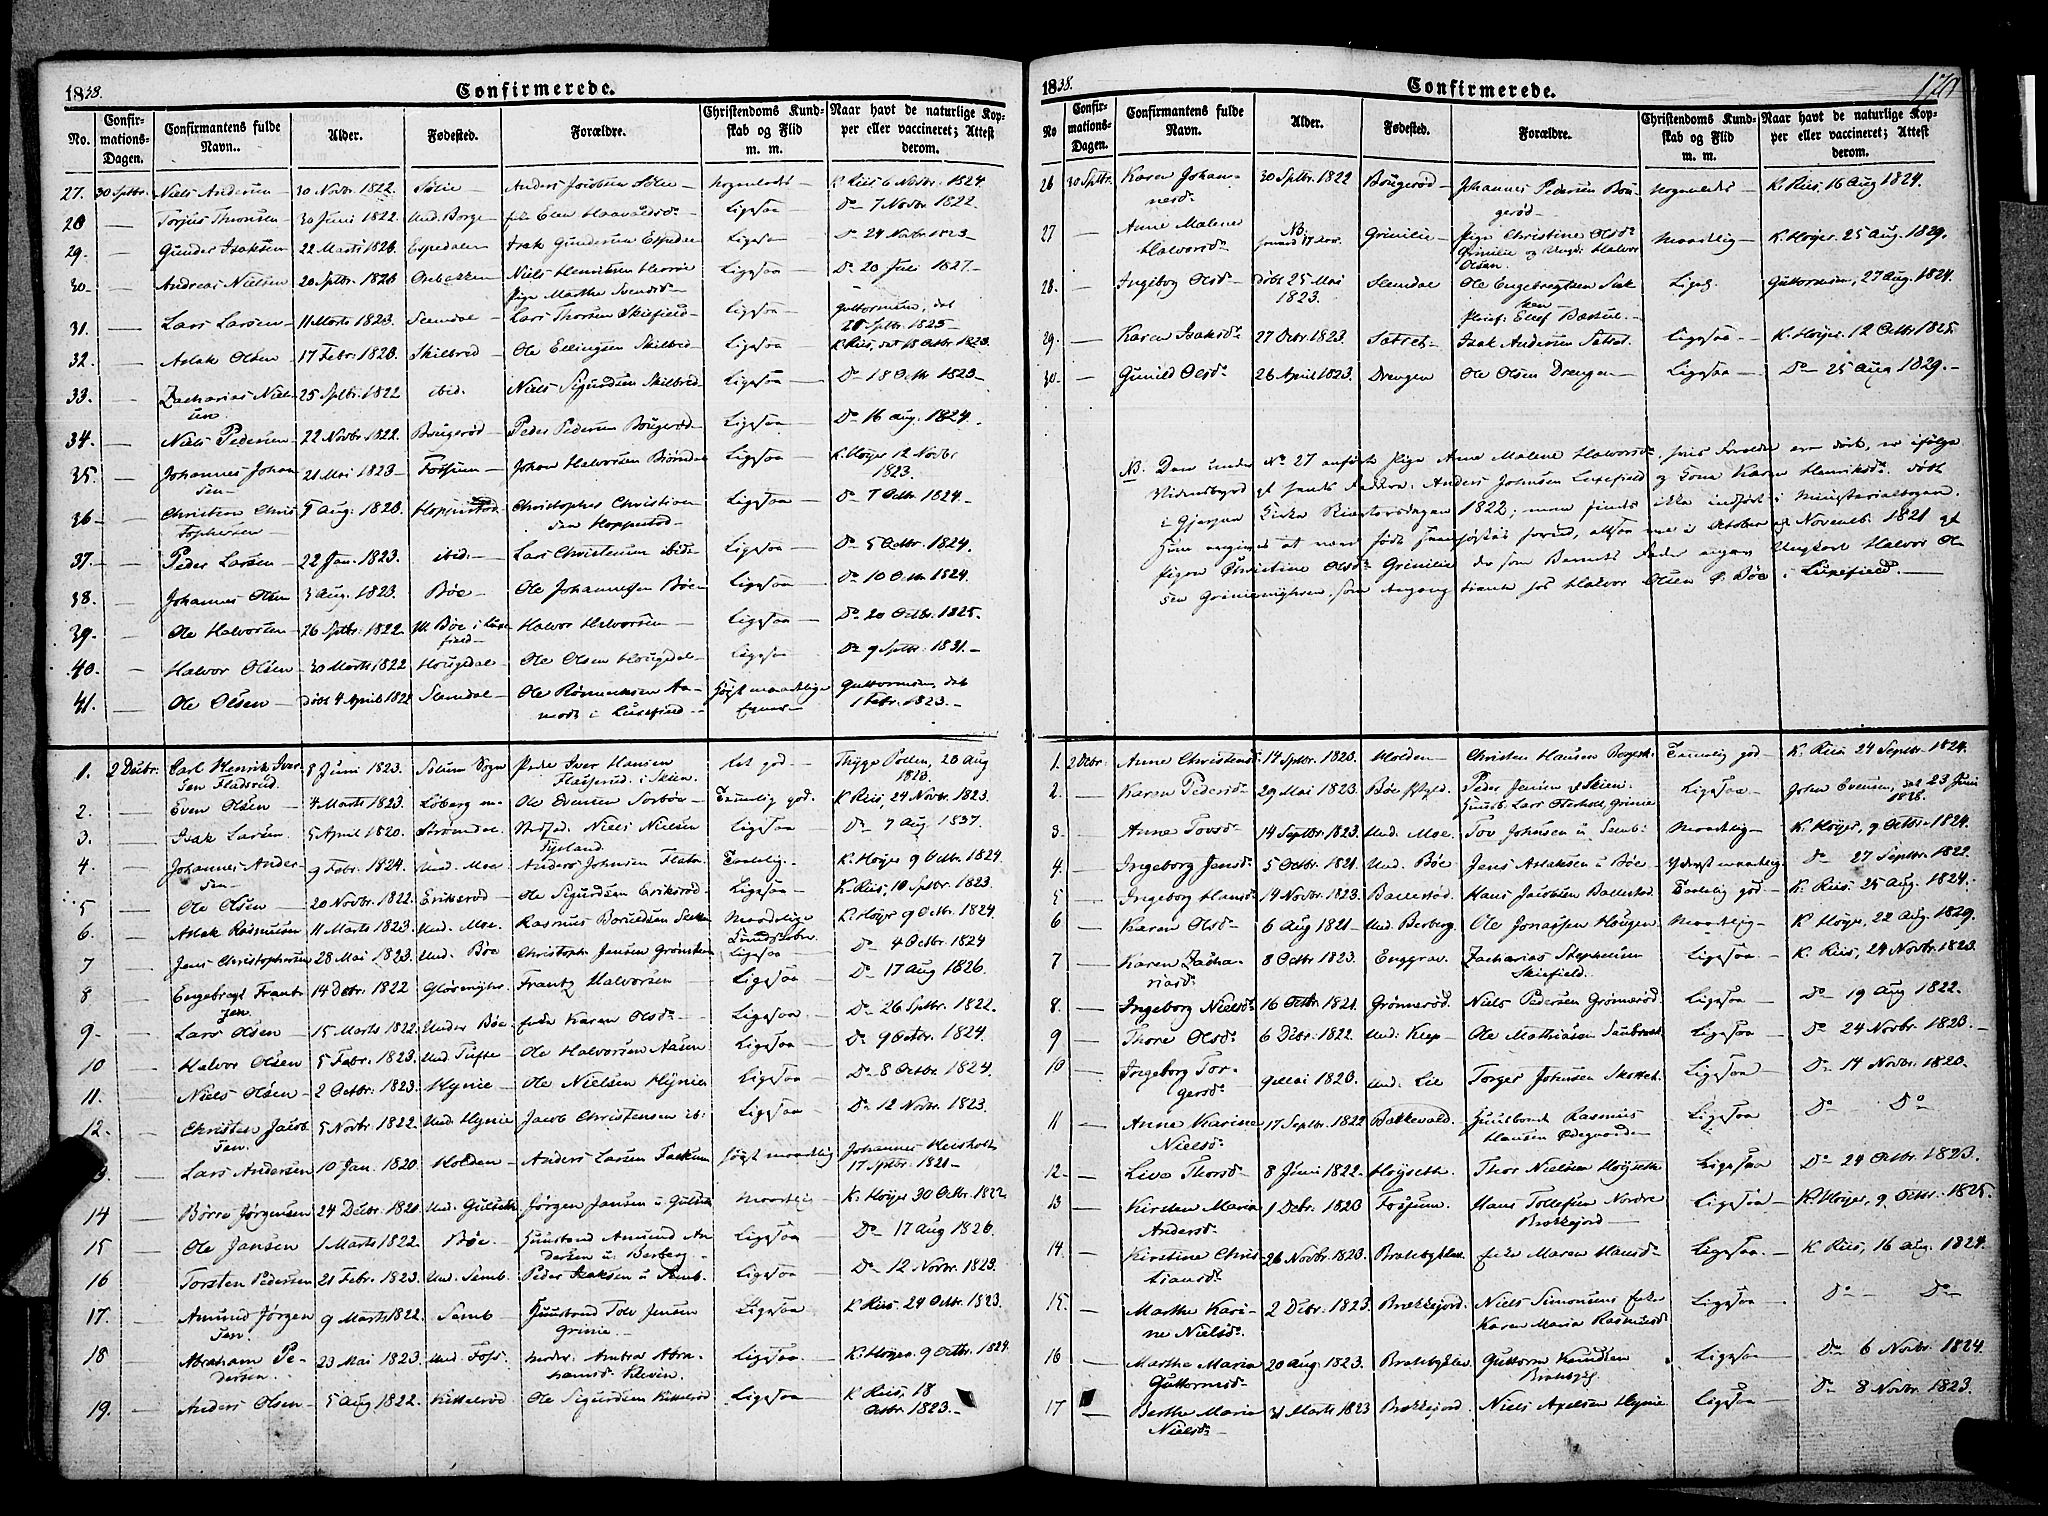 1838. Confirmerede.
No. Confirmations-Dagen. Confirmantens fulde Navn. Alder. Fødested. Forældre. Christendoms Kundskab og Flid m. m. Naar havt de naturlige Kopper eller vaccineret; Attest derom.
27. 30 Sptbr. Niels Andersen 30 Novbr. 1822. Sølie Anders Jacobsen Sølie Nogenledes K. Riis 6 Novbr. 1824.
28 — Torjus Thronsen 30 Juni 1822. Und. Borge Enke Elen Haavaldsd. Ligesaa Do 7 Novbr. 1822.
29. — Gunder Isaksen 22 Marts 1823 Espedalen Isak Gundersen Espedal Ligesaa Do 24 Novbr. 1823
30. — Andreas Nielsen 20 Sptbr. 1823 Niels Henriksen
Pige Marthe Svendsd. Ligesaa Do 20 Juli 1827.
31. — Lars Larsen 11 Marts 1823. Slemdal Lars Thorsen Skifjeld Ligesaa Guttormsen, det
Sptbr. 1825
32. — Aslak Olsen 17 Febr. 1823. Skilbred Ole Ellingsen Skilbred Ligesaa K. Riis, det 18 Octbr 1823.
33. — Zacharias Niel-
sen. 25 Sptbr. 1822 ibid. Niels Sigurdsen Skilbred Ligesaa Do 18 Octbr 1823
34. — Niels Pedersen 22 Novbr. 1822. Bougerød Peder Pedersen Bougerød Ligesaa Do 16 Aug. 1824.
35. — Johannes Johan
sen 21 Mai 1823 Fossum Johan Halvorsen Bjørndal Ligesaa K. Høyer 12 Novbr
1823.
36 — Christian Chris
tophersen Aug. 1823. Hoppestad Christopher Christian
sen Hoppestad Ligesaa Do 7 Octbr. 1824
37. — Peder Larsen 22 Jan. 1823. ibid. Lars Christensen ibid. Ligesaa Do 5 Octbr. 1824.
38. — Johannes Olsen 3 Aug. 1823. Bøe Ole Johannesen Bøe Ligesaa Do 10 Octbr 1824.
39. — Ole Halvorsen 26 Sptbr. 1822. Bøe i Luxe
fjeld Halvor Halvorsen Ligesaa Do 20 Octbr. 1825.
40. — Halvor Olsen 30 Marts 1822 Hougedal Ole Olsen Hougedal Ligesaa Do 9 Sptbr. 1831.
41. — Ole Olsen døbt 4 April 1822 Slemdal Ole Aa-
modt i Luxefjeld høyst maadelige
Evner Guttormsen, det
1 Febr. 1823.
1. 2 Decbr. Carl Henrik Iver
sen Fladsrud. 8 Juni 1823. Solum Sogn Iver Hansen
i Skien. Ret god Thygge Poulsen, 20 Aug
1823.
2. — Even Olsen 4 Marts 1823. Løberg Ole Evensen Sorbøe Temmelig god. K. Riis, 24 Novbr. 1823.
3. — Isak Larsen 5 April 1820. Strømdal Niels Nielsen
Ligesaa Do 7 Aug. 1837.
4. — Johannes Ander-
sen 9 Febr. 1824. Und. Moe Anders Johnsen K. Høyer 9 Octbr. 1824.
5 — Ole Olsen 20 Novbr. 1822. Eriksrød Ole Sigurdsen Eriksrød Ligesaa K. Riis, 10 Sptbr. 1823.
6. — Aslak Rasmusen 11 Marts 1823. Und. Moe. Rasmus Maadelige
Kundskaber K. Høyer 9 Octbr. 1824.
7 — Jens Christophersen 28 Mai 1823. Und. Bøe Christoph. Jensen Grønsten Ligesaa Do 4 Octbr. 1824
8 — Engebregt Frant-
sen. 14 Decbr. 1822 Frantz Halvorsen Ligesaa Do 17 Aug 1826.
9. — Lars Olsen 15 Marts 1822. Under Bøe Enke Karen Olsd. Ligesaa Do 26 Sptbr. 1822.
10 — Halvor Olsen 5 Febr. 1823. Und. Tufte Ole Halvorsen Aasen Ligesaa Do 9 Octbr. 1824.
11. — Niels Olsen 2 Octbr. 1823. Hynie Ole Nielsen Hynie Ligesaa Do 8 Octbr. 1824.
12. — Christen Jacob
sen. 5 Novbr 1822. Und. Hynie Jacob Christensen ib: Ligesaa Do 12 Novbr. 1823.
13. — Lars Andersen 10 Jan. 1820. Holden Anders Larsen høyst maadelig Johannes
17 Sptbr. 1821
14 — Børre Jørgensen 24 Decbr. 1821 Und. Gulseth Jørgen Jansen u. Gulseth Maadelig K. Høyer 30 Octbr. 1822
15 — Ole Jansen 1 Marts 1822. Bøe Huusbond Amund An
dersen u. Berberg. Ligesaa Do 17 Aug 1826.
16 — Torsten Pedersen 21 Febr. 1823. Und. Semb Peder Isaksen u Semb. Ligesaa Do 12 Novbr. 1823.
17. — Amund Jørgen
sen. 9 Marts 1822. Semb Huusbond Tolv Jensen
Grinie. Ligesaa K Riis 24 Octbr. 1823.
18 — Abraham Pe-
dersen. 23 Mai 1823. Und. Foss. Moder: Abra
hamsd. Kleven. Ligesaa K. Høyer. 9 Octbr. 1824
19. — Anders Olsen 5 Aug 1822. Kittelrød Ole Sigurdsen Kittelrød Ligesaa K Riis, 18
Octbr. 1823.
1838. Confirmerede. 170
No Confirmations-Dagen. Confirmantens fulde Navn. Alder. Fødested. Forældre. Christendoms Kundskab og Flid m. m. Naar havt de naturlige Kopper eller vaccineret; Attest derom.
26 30 Sptbr. Karen Johan-
nesd. 30 Sptbr. 1822 Bougerød Johannes Pedersen Bou
gerød Nogenleds K. Riis, 16 Aug 1824.
27 — Anne Malene
Halvorsd. NB. Grinilie Pige Christine Olsd.
Grinilie og Ungk. Halvor
Olsen. Maadelig K. Høyer 25 Aug. 1829.
28. — Ingeborg Olsd. døbt 25 Mai
1823. Slemdal Ole Engebregtsen
Ellef Ligs. Guttormsen, 27 Aug. 1824.
29. — Karen Isaksd. 27 Octbr. 1823. Sætret Isak Andersen Sætret Ligesaa K. Høyer 12 Octbr 1825.
30. — Gunild Olsd. 26 April 1823. Drengen Ole Olsen Drengen Ligesaa Do 25 Aug 1829.
NB. Den under No 27 anførte Pige Anne Malene Halvorsd., hvis Foreldre ere døde, er ifølge
Vidnesbyrd af hendes Faddere: Anders Johnsen Luxefjeld og Tone Karen Henriksd. døbt
i Gjerpen Kirke 1822; men findes ikke indført i Ministerialbogen.
Hun angives at være født forud, altsaa i October eller Novembr. 1821 af
Pigen Christine Olsd. Grinilie der som Barnets Fader angav Ungkarl Halvor Ol
sen som dengang tjente hos Halvor Olsen Bøe i Luxefjeld.
1. 2 Decbr. Anne Christensd. 14 Sptbr. 1823. Holden Christen Hansen Temmelig god K. Riis 24 Septbr. 1824.
2. — Karen Pedersd. 29 Mai 1823. Bøe Peder Jensen af Skien.
Huusb. Lars Grinie Ligesaa John Evensen, det 23 Juni
1828.
3 — Anne Tovsd. 14 Septbr. 1823. Und. Moe. Tov Johnsen u. Semb. Maadelig K. Høyer, 9 Octbr. 1824.
4 — Ingeborg Jensd. 5 Octbr. 1821. Und. Bøe Jens Aslaksen u Bøe Yderst maadelig Do 27 Septbr. 1822.
5 — Ingeborg Hansd. 14 Novbr. 1823. Ballestad Hans Jacobsen Ballestad god K. Riis, 25 Aug. 1824.
6 — Karen Olsd. 6 Aug 1821 Und. Berberg. Ole Jonassen Hougen Maadelig K Høyer, 22 Aug. 1829.
7 — Karen Zacha-
riasd. 8 Octbr 1823. Enggrav Zacharias Stephensen
Skifjeld. Ligesaa K. Riis, 24 Novbr. 1823.
8. — Ingeborg Nielsd. 16 Octbr. 1821. Grønnerød. Niels Pedersen Grønnerød. Ligesaa Do 19 Aug 1822.
9 — Thore Olsd. 6 Decbr. 1822. Und. Kiep Ole Mathiasen Ligesaa Do 24 Novbr. 1823.
10 — Ingeborg Tor-
gersd. 9 Mai 1823. Und. Lie Torger Johnsen Ligesaa Do 14 Novbr. 1823.
11 — Anne Karine
Nielsd. 17 Septbr. 1822 Bakkevald. Huusbond Rasmus
Hansen Ødegaarden Ligesaa Do Do
12. — Live Thorsd. 8 Juni 1822. Høyseth Thor Nielsen Høyseth Ligesaa Do 24 Octbr. 1823.
13 — Kirsten Maria
Andersd. 1 Decbr. 1823 Fossum. Hans Tollefsen Nordre
Brekkejord Ligesaa K. Høyer, 9 Octbr. 1825.
14. — Kirstine Chris
tiansd. 26 Novbr. 1823. Bratsbykleven Enke Maren Hansd. Ligesaa K Riis, 16 Aug. 1824.
15. — Marthe Kari-
ne Nielsd. 2 Decbr. 1823. Brekkejord. Niels Simonsens Enke
Karen Maria Rasmusd. Ligesaa Do Do
16 — Marthe Maria
Guttormsd. 20 Aug. 1823. Bratsbykleven Guttorm Knudsen
Ligesaa Do 6 Novbr. 1824.
17 — Berthe Maria
Nielsd. 31 Marts 1823 Brekkejord. Niels Axelsen Hynie Ligesaa Do 8 Novbr. 1823.